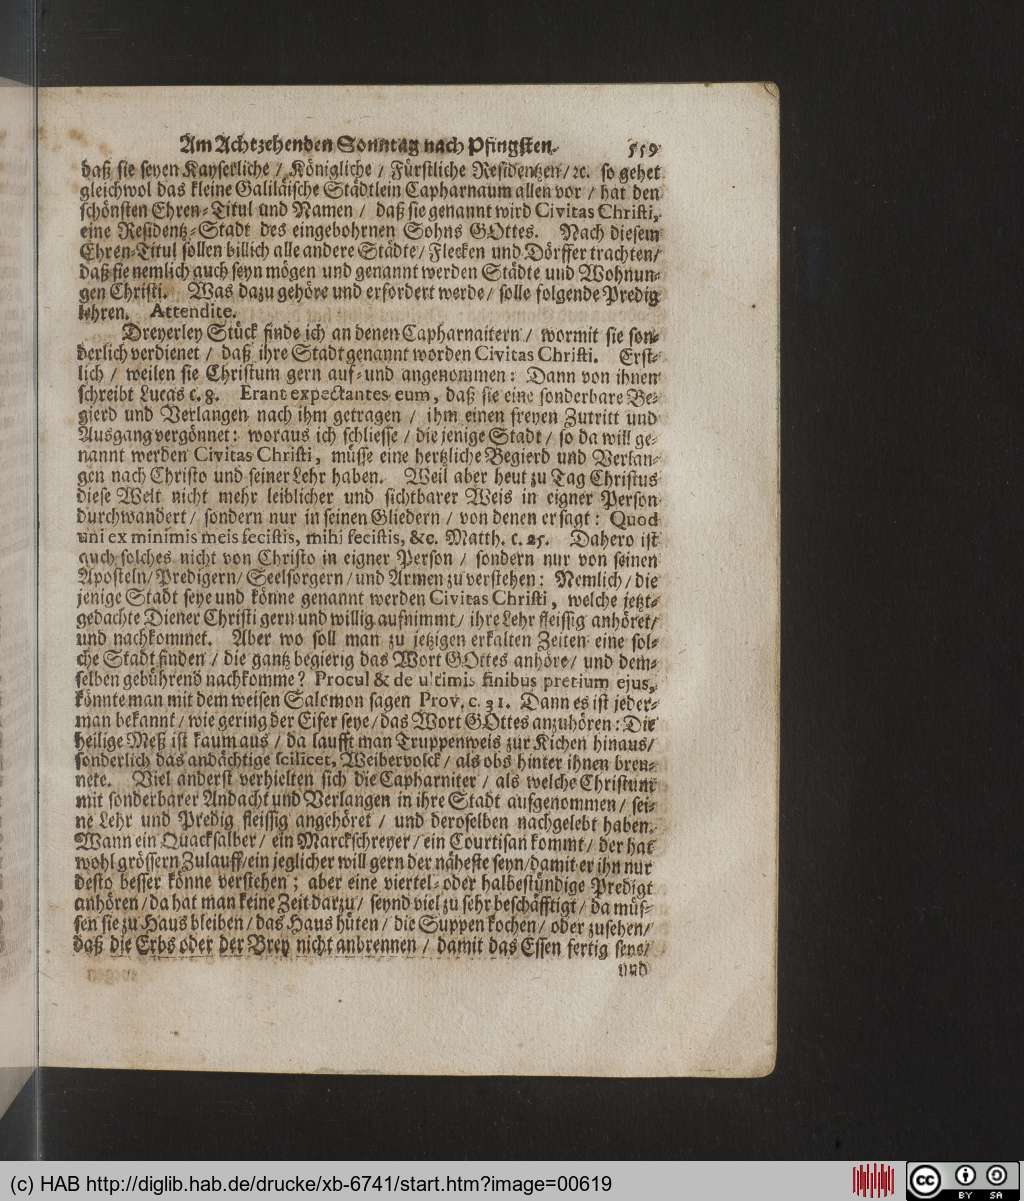 Am Achtzehenden Sonntag nach Pfingsten. 559
daß sie seyen Kayserliche / Königliche / Fürstliche Residentzen / ꝛc. so gehet
gleichwol das kleine Galiläische Städtlein Capharnaum allen vor / hat den
schönsten Ehren-Titul und Namen / daß sie genannt wird Civitas Christi,
eine Residentz-Stadt des eingebohrnen Sohns GOttes. Nach diesem
Ehren-Titul sollen billich alle andere Städte / Flecken und Dörffer trachten /
daß sie nemlich auch seyn mögen und genannt werden Städte und Wohnun-
gen Christi. Was dazu gehöre und erfordert werde / solle folgende Predig
lehren. Attendite.
Dreyerley Stück finde ich an denen Capharnaitern / wormit sie son-
derlich verdienet / daß ihre Stadt genannt worden Civitas Christi. Erst-
lich / weilen sie Christum gern auf- und angenommen: Dann von ihnen
schreibt Lucas c. 8. Erant expectantes eum, daß sie eine sonderbare Be-
gierd und Verlangen nach ihm getragen / ihm einen freyen Zutritt und
Ausgang vergönnet: woraus ich schliesse / die jenige Stadt / so da will ge-
nannt werden Civitas Christi, müsse eine hertzliche Begierd und Verlan-
gen nach Christo und seiner Lehr haben. Weil aber heut zu Tag Christus
diese Welt nicht mehr leiblicher und sichtbarer Weis in eigner Person
durchwandert / sondern nur in seinen Gliedern / von denen er sagt: Quod
uni ex minimis meis fecistis, mihi fecistis, &c. Matth. c. 25. Dahero ist
auch solches nicht von Christo in eigner Person / sondern nur von seinen
Aposteln / Predigern / Seelsorgern / und Armen zu verstehen: Nemlich / die
jenige Stadt seye und könne genannt werden Civitas Christi, welche jetzt-
gedachte Diener Christi gern und willig aufnimmt / ihre Lehr fleissig anhöret /
und nachkommet. Aber wo soll man zu jetzigen erkalten Zeiten eine sol-
che Stadt finden / die gantz begierig das Wort GOttes anhöre / und dem-
selben gebührend nachkomme? Procul & de ultimis finibus pretium ejus,
könnte man mit dem weisen Salomon sagen Prov. c. 31. Dann es ist jeder-
man bekannt / wie gering der Eifer seye / das Wort GOttes anzuhören: Die
heilige Meß ist kaum aus / da laufft man Truppenweis zur Kichen hinaus /
sonderlich das andächtige scilicet, Weibervolck / als obs hinter ihnen bren-
nete. Viel anderst verhielten sich die Capharniter / als welche Christum
mit sonderbarer Andacht und Verlangen in ihre Stadt aufgenommen / sei-
ne Lehr und Predig fleissig angehöret / und deroselben nachgelebt haben.
Wann ein Quacksalber / ein Marckschreyer / ein Courtisan kommt / der hat
wohl grössern Zulauff / ein jeglicher will gern der näheste seyn / damit er ihn nur
desto besser könne verstehen; aber eine viertel- oder halbestündige Predigt
anhören / da hat man keine Zeit darzu / seynd viel zu sehr beschäfftigt / da müs-
sen sie zu Haus bleiben / das Haus hüten / die Suppen kochen / oder zusehen /
daß die Erbs oder der Brey nicht anbrennen / damit das Essen fertig seye /
und
(c) HAB http://diglib.hab.de/drucke/xb-6741/start.htm?image=00619
cc BY SA